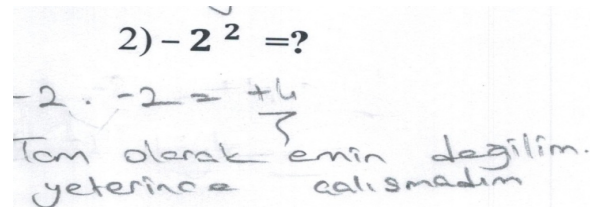 2) – 2 ² =?
-2 . -2 = +4
Tam olarak emin değilim.
yeterince çalışmadım